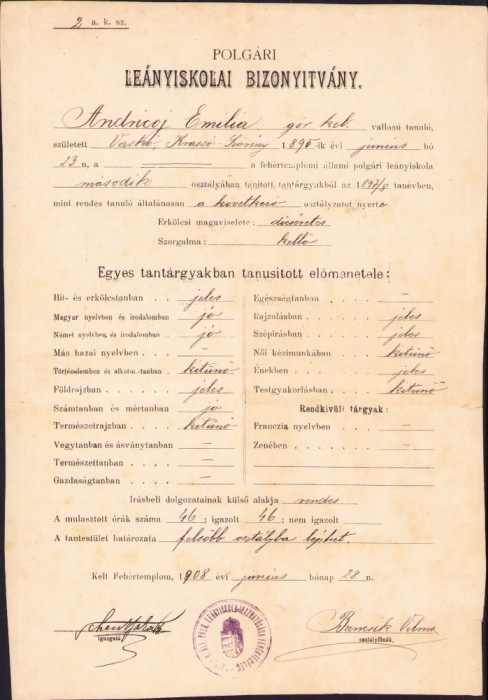 2 a. k. sz.
POLGÁRI
LEÁNYISKOLAI BIZONYITVÁNY.
Andricoj Emilia gör. kel. vallásu tanuló,
született Vaskő, Krassó-Szörény 1895-ik évi június hó
23 n, a fehértemplomi állami polgári leányiskola
második osztályában tanitott tantárgyakból az 1907/8 tanévben,
mint rendes tanuló általánosan a következő osztályzatot nyerte
Erkölcsi magaviselete: dicséretes
Szorgalma: kellő
Egyes tantárgyakban tanusitott előmenetele:
Hit- és erkölcstanban . . . jeles
Magyar nyelvben és irodalomban . jó
Német nyelvben, és irodalomban . jó
Más hazai nyelvben . . . . —
Történelemben és alkotm.-tanban . kitünő
Földrajzban . . . . . jeles
Számtanban és mértanban . . jó
Természetrajzban . . . . kitünő
Vegytanban és ásványtanban . —
Természettanban . . . . . —
Gazdaságtanban . . . . . —
Egészségtanban . . . . . —
Rajzolásban . . . . . . jeles
Szépirásban . . . . . . jeles
Női kézimunkában . . . . kitünő
Énekben . . . . . . . jeles
Testgyakorlásban . . . . kitünő
Rendkivüli tárgyak:
Franczia nyelvben . . . . —
Zenében . . . . . . . —
Irásbeli dolgozatainak külső alakja rendes
A mulasztott órák száma 46 ; igazolt 46 ; nem igazolt —
A tantestület határozata felsőbb osztályba léphet.
Kelt Fehértemplom, 1908 évi június hónap 28 n.
igazgató
Bamcsik Vilma
osztályfőnök.